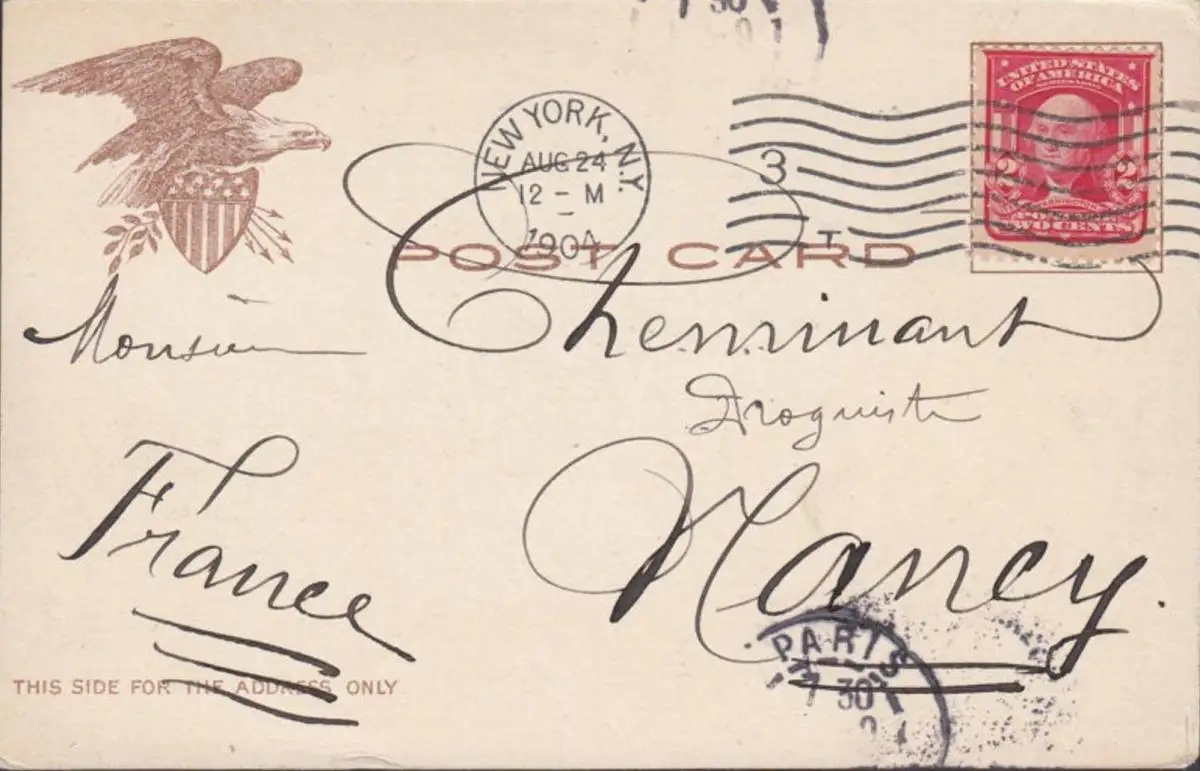 30
UNITED STATES
OF AMERICA
2 2
TWO CENTS
NEW YORK, N.Y.
AUG 24
12 - M
1904
3
T
POST CARD
Monsieur
Cheminant
Droguiste
Nancy.
France
PARIS
30
THIS SIDE FOR THE ADDRESS ONLY